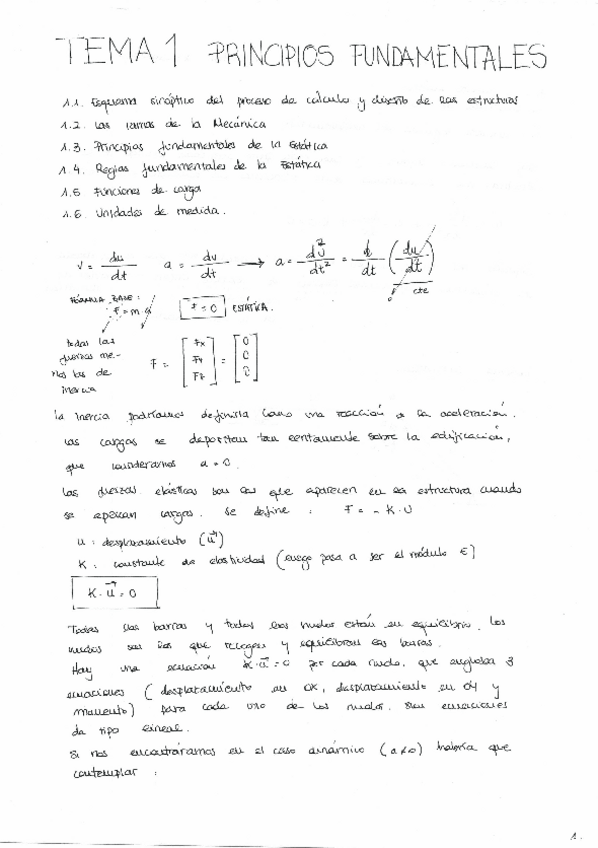 TEMA 1 PRINCIPIOS FUNDAMENTALES
1.1. Esquema sinóptico del proceso de cálculo y diseño de las estructuras
1.2. Las ramas de la Mecánica
1.3. Principios fundamentales de la Estática
1.4. Reglas fundamentales de la Estática
1.5 Funciones de carga
1.6. Unidades de medida.
v = du/dt a = dv/dt → a = d²u/dt² = d/dt (du/dt)
0 cte
FÓRMULA BASE:
F = m·a F = 0 ESTÁTICA.
todas las
fuerzas me-
nos las de
inercia
F = [Fx Fy Fz] = [0 0 0]
La inercia podríamos definirla como una reacción a la aceleración.
Las cargas se depositan tan lentamente sobre la edificación,
que consideramos a = 0.
Las fuerzas elásticas son las que aparecen en la estructura cuando
se aplican cargas. Se define: F = - K · U
u: desplazamiento (u⃗)
K: constante de elasticidad (luego pasa a ser el módulo E)
K · u⃗ = 0
Todas las barras y todos los nudos están en equilibrio. Los
nudos son los que recogen y equilibran las barras.
Hay una ecuación K·u⃗ = 0 por cada nudo, que engloba 3
ecuaciones (desplazamiento en OX, desplazamiento en OY y
momento) para cada uno de los nudos. Son ecuaciones
de tipo lineal.
Si nos encontráramos en el caso dinámico (a≠0) habría que
contemplar:
1.